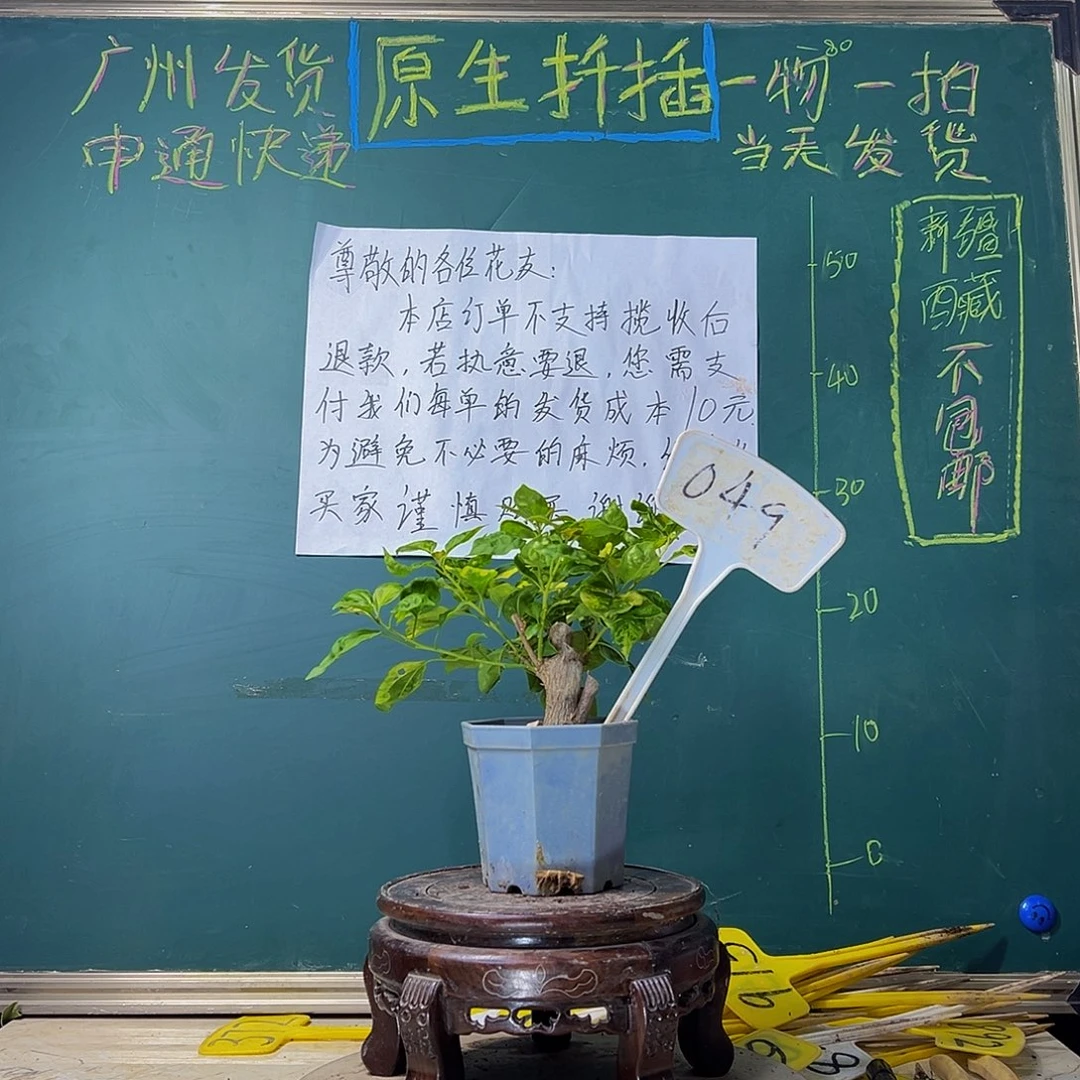 广州发货
申通快递
原生扦插
一物一拍
当天发货
尊敬的各位花友:
本店订单不支持揽收后
退款,若执意要退,您需支
付我们每单的发货成本10元.
为避免不必要的麻烦.
买家谨慎
049
50
40
30
20
10
0
新疆
西藏
不
包
邮
32